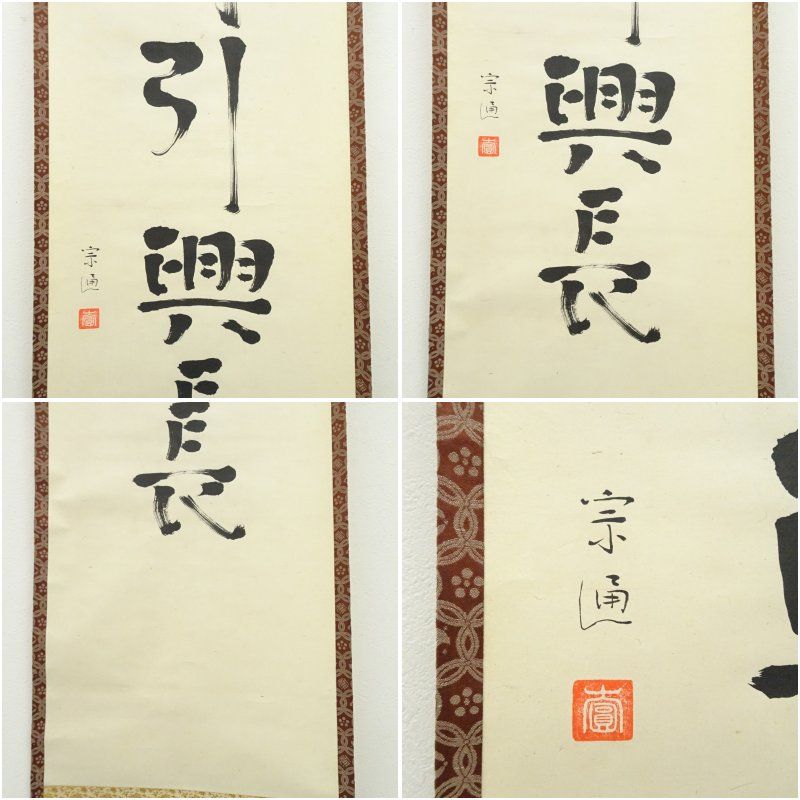 引興長
宗通
興長
宗通
長
宗通